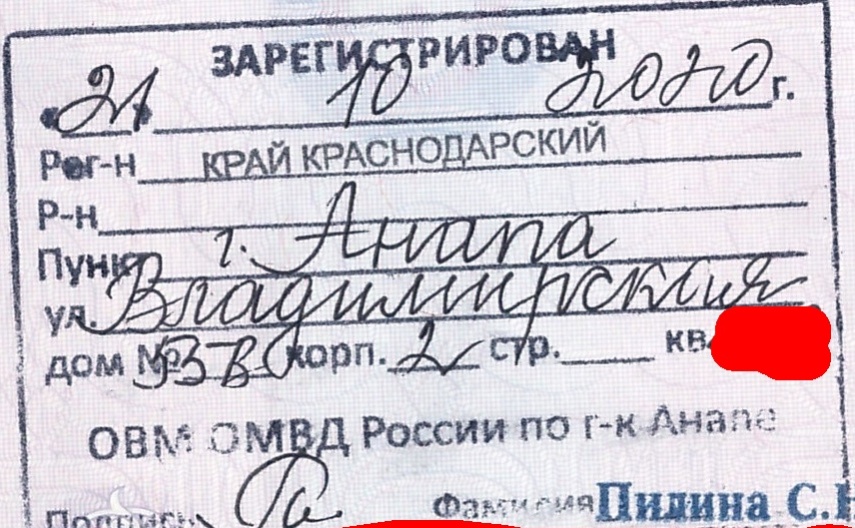 ЗАРЕГИСТРИРОВАН
«21» 10 2020 г.
Рег-н КРАЙ КРАСНОДАРСКИЙ
Р-н
Пункт г. Анапа
ул. Владимирская
дом № корп. 2 стр. кв.
ОВМ ОМВД России по г-к Анапе
Подпись Фамилия Пилина С.